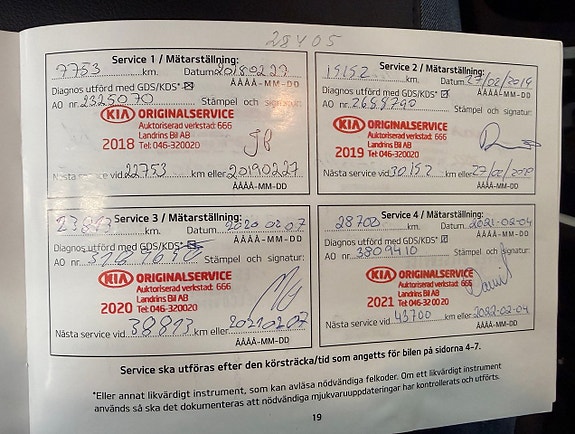 28405
Service 1 / Mätarställning:
7753 km. Datum 20180227
Diagnos utförd med GDS/KDS* ÅÅÅÅ-MM-DD
AO nr. 2325070 Stämpel och signatur:
KIA ORIGINALSERVICE
Auktoriserad verkstad: 666
Landrins Bil AB
2018 Tel: 046-320020
Nästa service vid 22753 km eller 20190227
ÅÅÅÅ-MM-DD
Service 2 / Mätarställning:
15152 km. Datum 27/02/2019
Diagnos utförd med GDS/KDS* ÅÅÅÅ-MM-DD
AO nr. 2688790 Stämpel och signatur:
KIA ORIGINALSERVICE
Auktoriserad verkstad: 666
Landrins Bil AB
2019 Tel: 046-320020
Nästa service vid 30152 km eller
ÅÅÅÅ-MM-DD
Service 3 / Mätarställning:
23813 km. Datum 2020 02 07
Diagnos utförd med GDS/KDS* ÅÅÅÅ-MM-DD
AO nr. Stämpel och signatur:
KIA ORIGINALSERVICE
Auktoriserad verkstad: 666
Landrins Bil AB
2020 Tel: 046-320020
Nästa service vid 38813 km eller 20210207
ÅÅÅÅ-MM-DD
Service 4 / Mätarställning:
28700 km. Datum 2021-02-04
Diagnos utförd med GDS/KDS* ÅÅÅÅ-MM-DD
AO nr. 3809410 Stämpel och signatur:
KIA ORIGINALSERVICE
Auktoriserad verkstad: 666
Landrins Bil AB
2021 Tel: 046-320020
Nästa service vid 43700 km eller 2022-02-04
ÅÅÅÅ-MM-DD
Service ska utföras efter den körsträcka/tid som angetts för bilen på sidorna 4-7.
*Eller annat likvärdigt instrument, som kan avläsa nödvändiga felkoder. Om ett likvärdigt instrument
används så ska det dokumenteras att nödvändiga mjukvaruuppdateringar har kontrollerats och utförts.
19